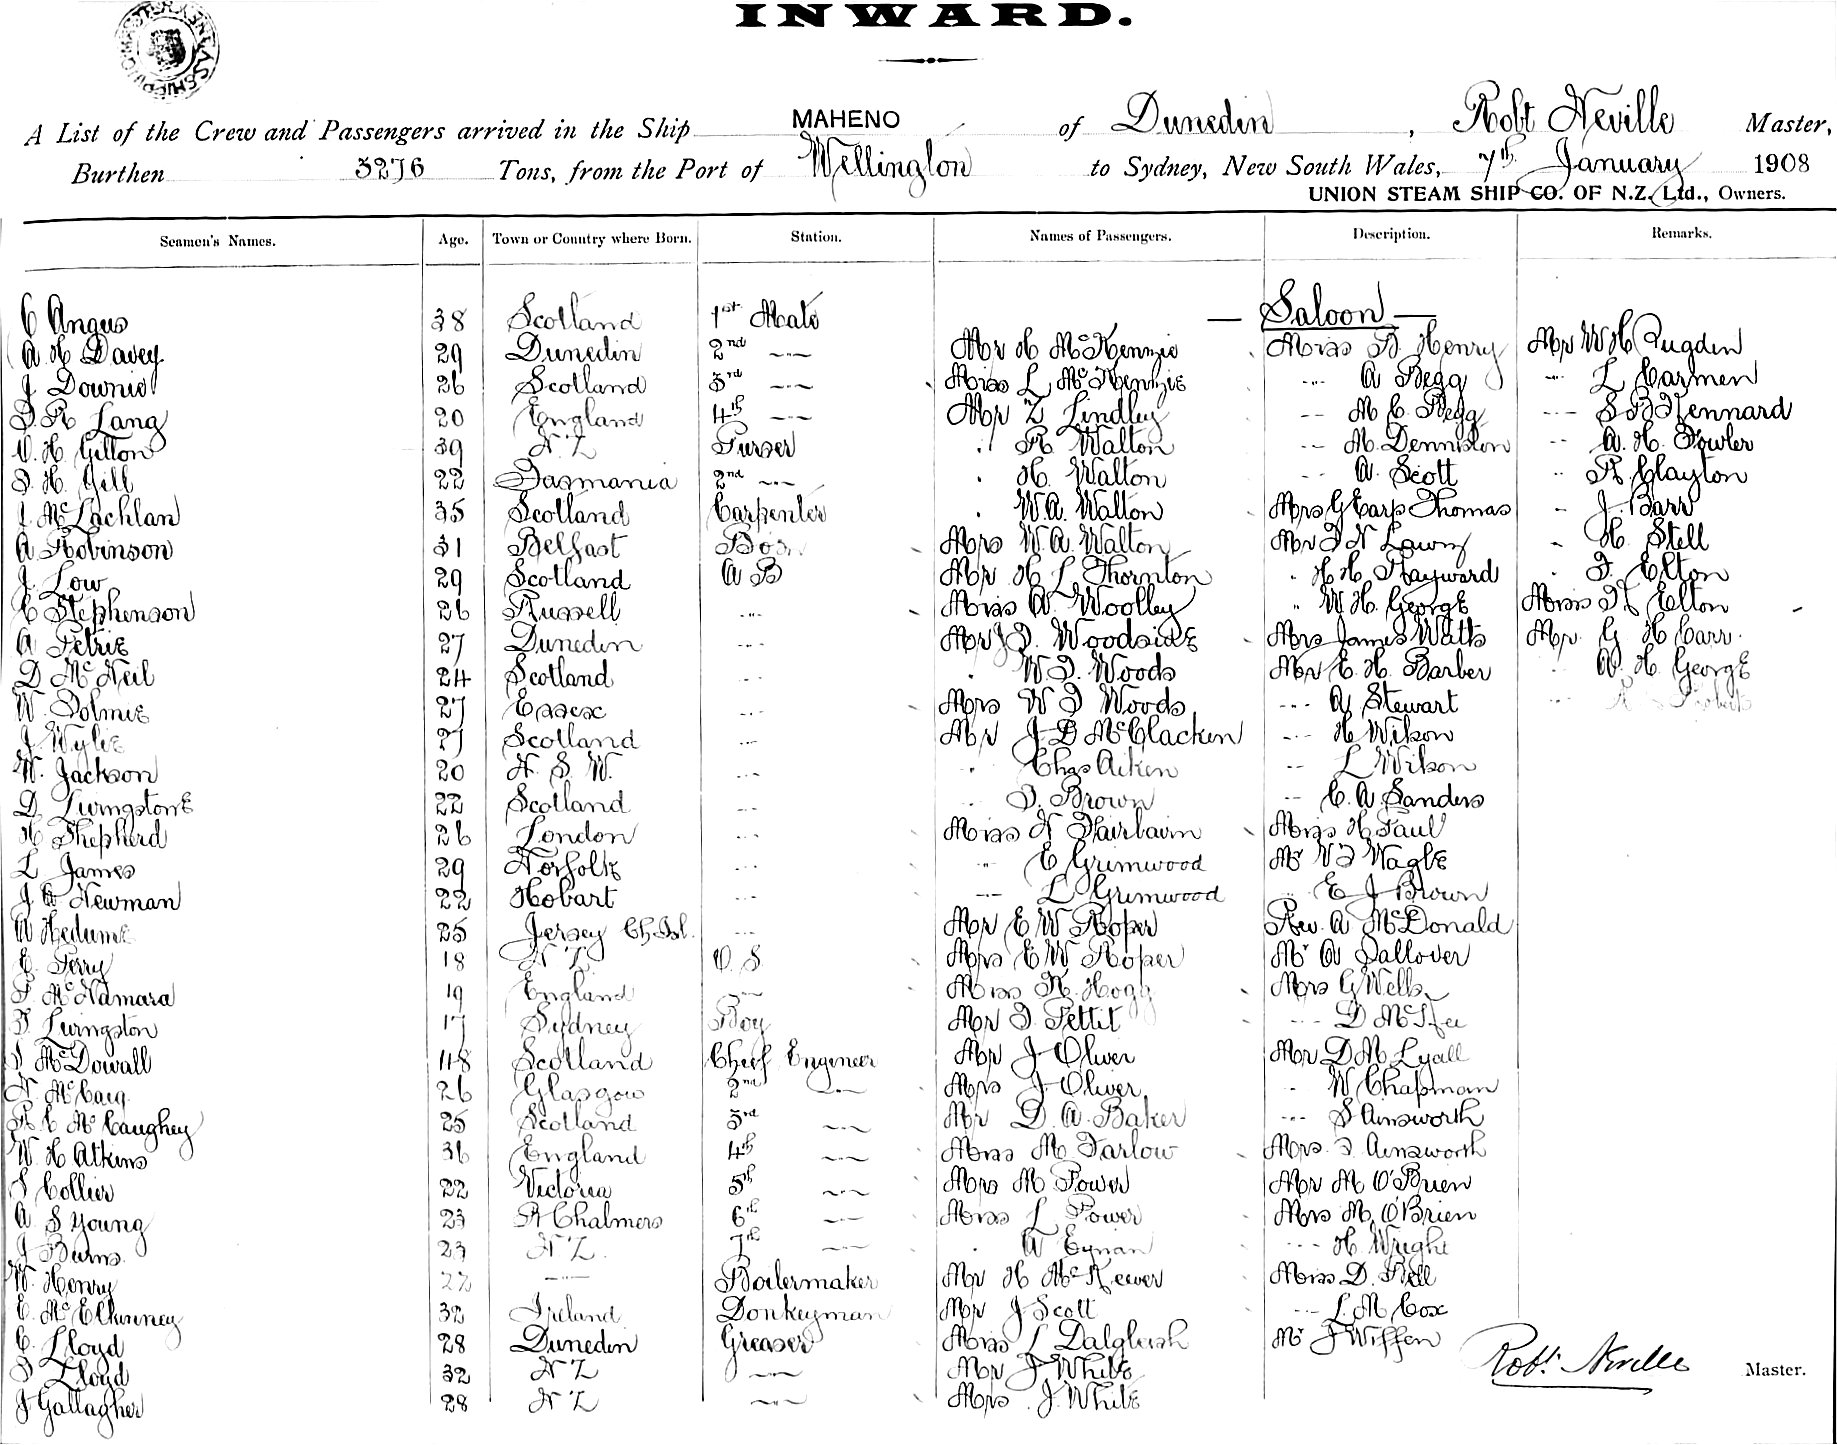 INWARD.
A List of the Crew and Passengers arrived in the Ship MAHENO of Dunedin, Robt Neville Master,
Burthen 3276 Tons, from the Port of Wellington to Sydney, New South Wales, 7th January 1908
UNION STEAM SHIP CO. OF N.Z. Ltd., Owners.
Seamen's Names. Age. Town or Country where Born. Station. Names of Passengers. Description. Remarks.
— Saloon —
C Angus 38 Scotland 1st Mate
A H Davey 29 Dunedin 2nd —"— Mr H McKenzie Miss B Henry Mr W H Cugden
J Downie 26 Scotland 3rd —"— Miss L McKenzie —"— A Begg —"— L Carmen
R Lang 20 England 4th —"— Mr Z Lindley —"— M C Begg —"— S B Kennard
C. H Gillon 39 N Z Purser R Walton —"— M Denniston —"— A. H. Fowler
H. Gill 22 Tasmania 2nd —"— H. Walton —"— A. Scott " R Clayton
J. McLachlan 35 Scotland Carpenter W A. Walton Mrs G Earp Thomas " J. Barr
A Robinson 31 Belfast Bosn Mrs W. A. Walton Mr N " H. Stell
J. Low 29 Scotland A B Mr H L Thornton " H H Hayward " F. Elton
C Stephenson 26 Russell —"— Miss A. Woolley " W H. George Miss H Elton
A Petrie 27 Dunedin —"— Mr J. Woodside Mrs James Watts Mr G H Carr
D McNeil 24 Scotland —"— W J. Woods Mr E. H. Barber " A. H. George
W. Tolmie 27 Essex —"— Mrs W J Woods —"— A Stewart
J Wylie 27 Scotland —"— Mr J D McClacken —"— H Wilson
W. Jackson 20 N. S. W. —"— Chas Aiken —"— L Wilson
D Livingstone 22 Scotland —"— J. Brown —"— C. A. Sanders
H Shepherd 26 London —"— Miss N Fairbairn Miss H Paul
L James 29 Norfolk —"— " E Grimwood Mr V J Nagle
J A Newman 22 Hobart —"— —"— L Grimwood " E J Brown
A 25 Jersey Ch. Isl. —"— Mr E W Roper Rev. A McDonald
E. Perry 18 N Z. O. S. Mrs E W Roper Mr A Jallover
McNamara 19 England —"— Miss R. Hogg Mrs G Wells
Livingston 17 Sydney Boy Mr J. Pettit —"— D
McDowall 48 Scotland Chief Engineer Mr J Oliver Mr D M Lyall
N. McCaig 26 Glasgow 2nd —"— Mrs J Oliver " W Chapman
R C McCaughey 25 Scotland 3rd —"— Mr D. A. Baker —"— J Ainsworth
W. H. Atkins 36 England 4th —"— Miss M Tarlow Mrs. J Ainsworth
J Collier 22 Victoria 5th —"— Mrs M Power Mr M O'Brien
A S Young 23 Pt Chalmers 6th —"— Miss L Power Mrs M. O'Brien
J Burns 23 N Z. 7th —"— A Eynan —"— H. Wright
W. Henry 22 —"— Boilermaker Mr H McKeever Miss D. Bell
C. McElhinney 32 Ireland Donkeyman Mr J Scott —"— L. M Cox
C. Lloyd 28 Dunedin Greaser Miss L Dalgleish Mr J Wiffen
Lloyd 32 N Z —"— Mr J. White Robt. Neville Master.
J Gallagher 28 N Z —"— Mrs. J. White